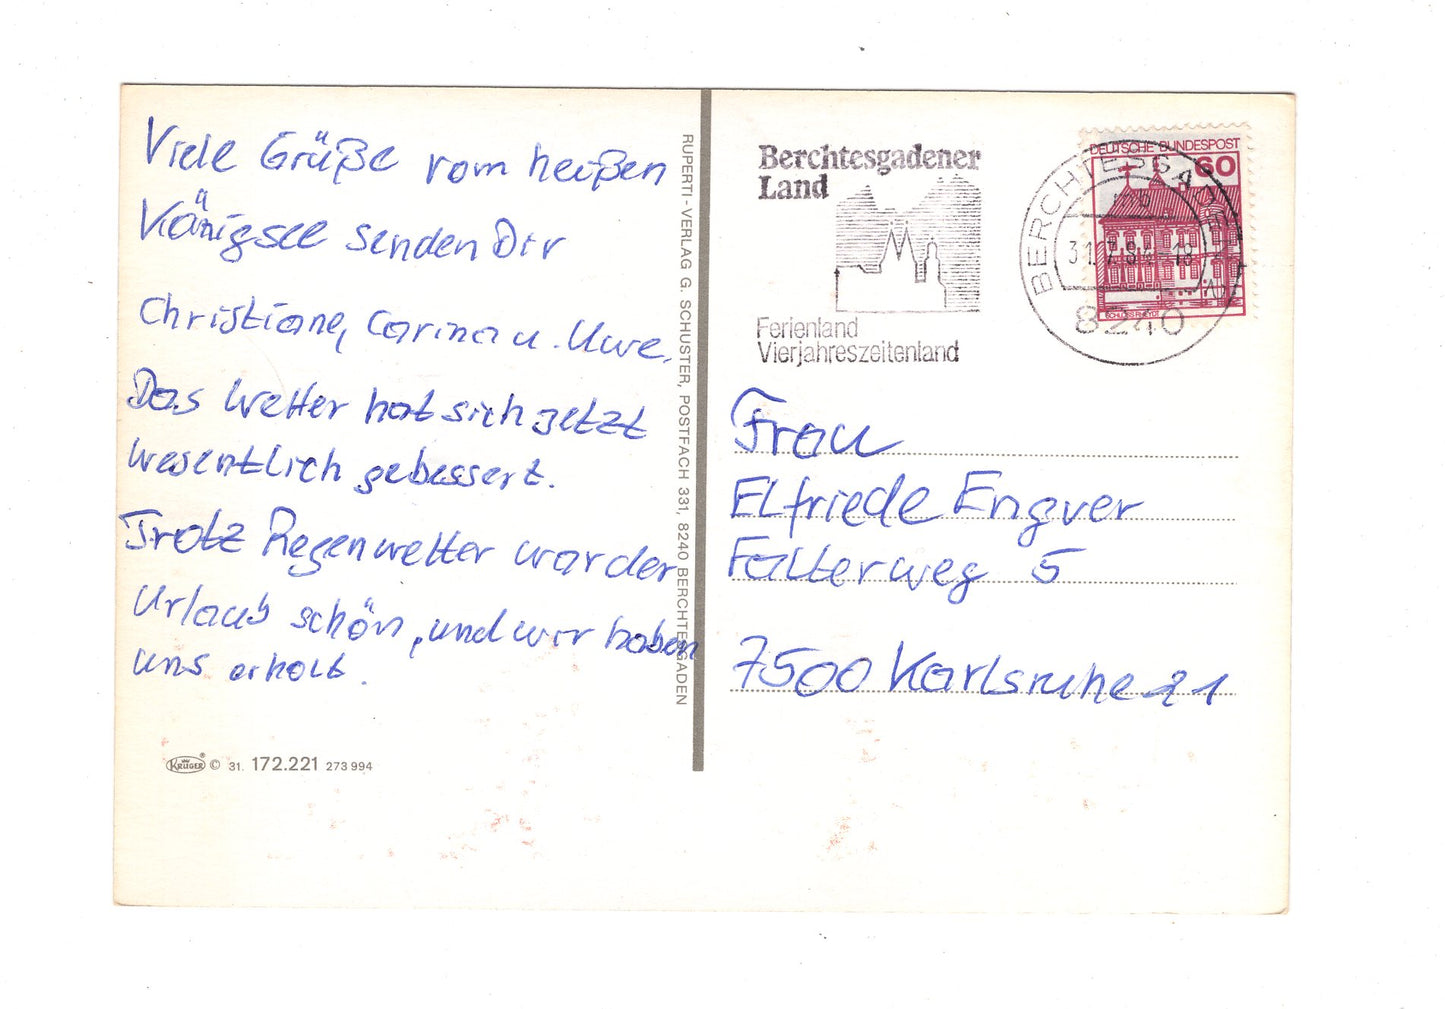 Viele Grüße vom heißen
Königsee senden Dir
Christiane, Carina u. Uwe.
Das Wetter hat sich jetzt
wesentlich gebessert.
Trotz Regenwetter war der
Urlaub schön, und wir haben
uns erholt.
KRÜGER ® © 31. 172.221 273 994
RUPERTI-VERLAG G. SCHUSTER, POSTFACH 331, 8240 BERCHTESGADEN
Berchtesgadener
Land
Ferienland
Vierjahreszeitenland
BERCHTESGADEN
31.7.84-18
8240
DEUTSCHE BUNDESPOST
60
SCHLOSS RHEYDT
Frau
Elfriede Engver
Falterweg 5
7500 Karlsruhe 21